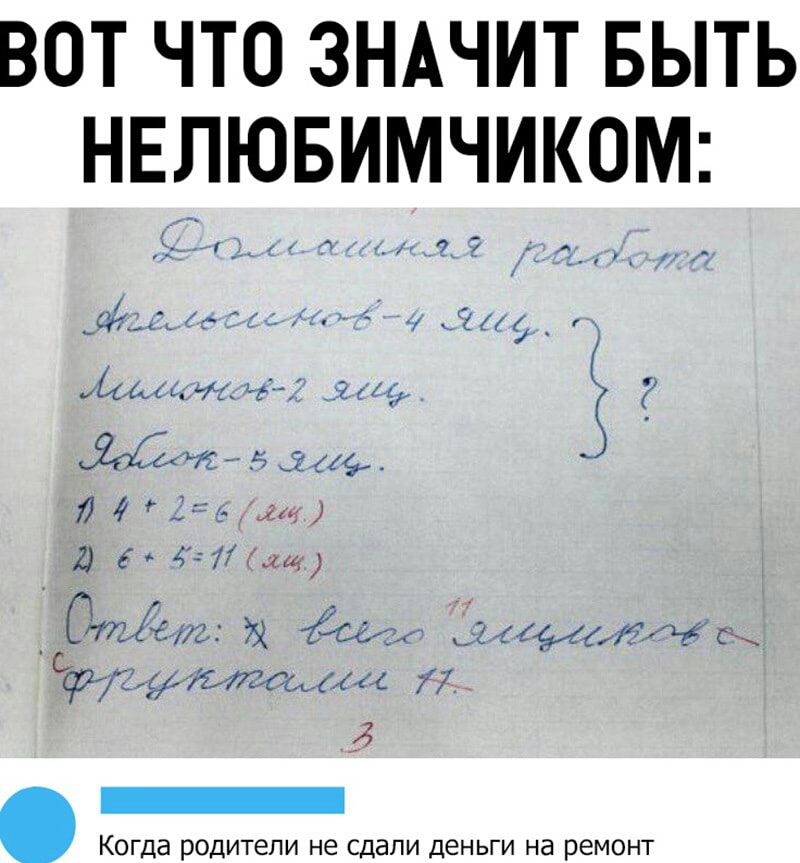 ВОТ ЧТО ЗНАЧИТ БЫТЬ
НЕЛЮБИМЧИКОМ:
Домашняя работа
Апельсинов-4 ящ.
Лимонов-2 ящ.
?
Яблок-5 ящ.
1) 4 + 2=6 (ящ.)
2) 6 + 5=11 (ящ.)
11
Ответ: всего ящиков с
с фруктами 11.
3
Когда родители не сдали деньги на ремонт